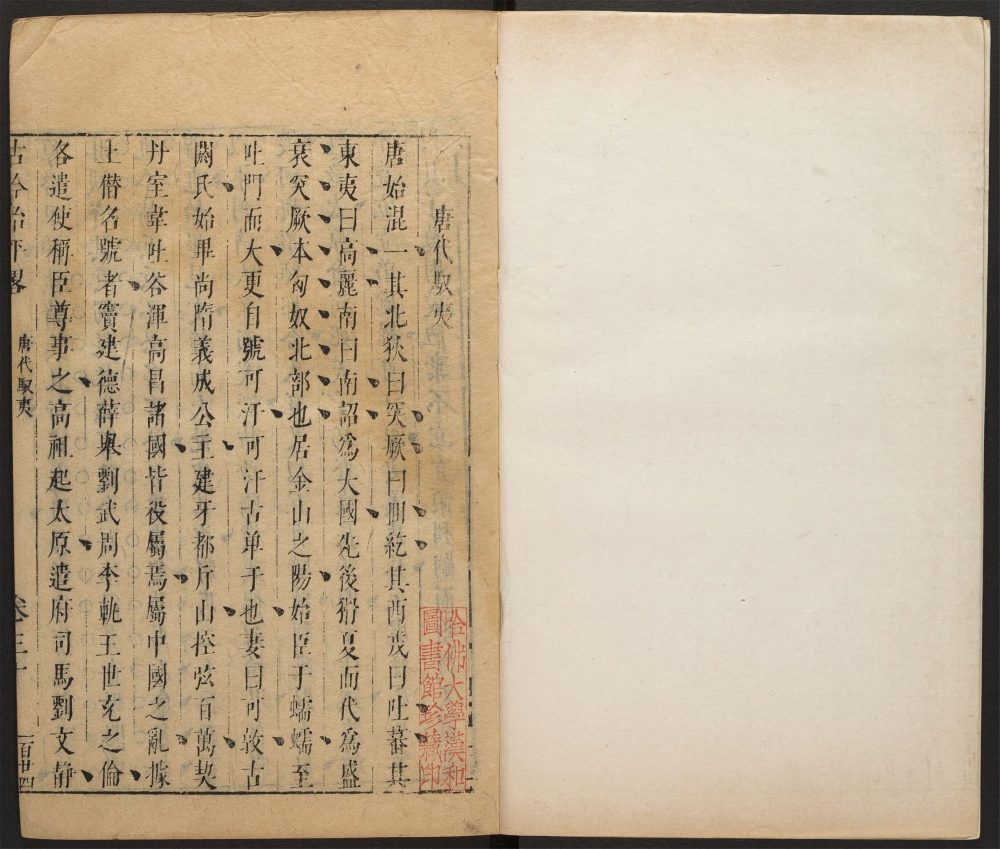 唐代馭夷
唐始混一其北狄曰突厥曰回紇其西戎曰吐蕃其
東夷曰高麗南曰南詔爲大國先後猾夏而代爲盛
衰突厥本匈奴北部也居金山之陽始臣于蠕蠕至
吐門而大更自號可汗可汗古单于也妻曰可敦古
閼氏始畢尚隋義成公主建牙都斤山控弦百萬契
丹室韋吐谷渾高昌諸國皆役屬焉屬中國之亂據
土僣名號者竇建德薛舉劉武周李軌王世充之倫
各遣使稱臣尊事之高祖起太原遣府司馬劉文静
古今治平畧
唐代馭夷
卷三十
一百廿四
哈佛大學漢和
圖書館珍藏印